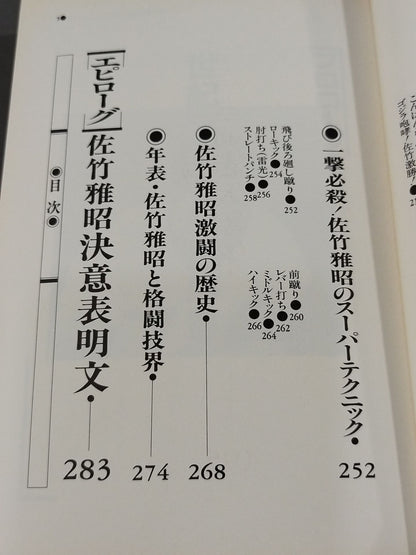 ゴジラ咆哮！佐竹激勝！●
◉一撃必殺！佐竹雅昭のスーパーテクニック●252
飛び後ろ廻し蹴り●252
ローキック●254
肘打ち（雷光）●256
ストレートパンチ●258
前蹴り●260
レバー打ち●262
ミドルキック●264
ハイキック●266
◉佐竹雅昭激闘の歴史●268
◉年表・佐竹雅昭と格闘技界●274
［エピローグ］佐竹雅昭決意表明文●283
●目次●